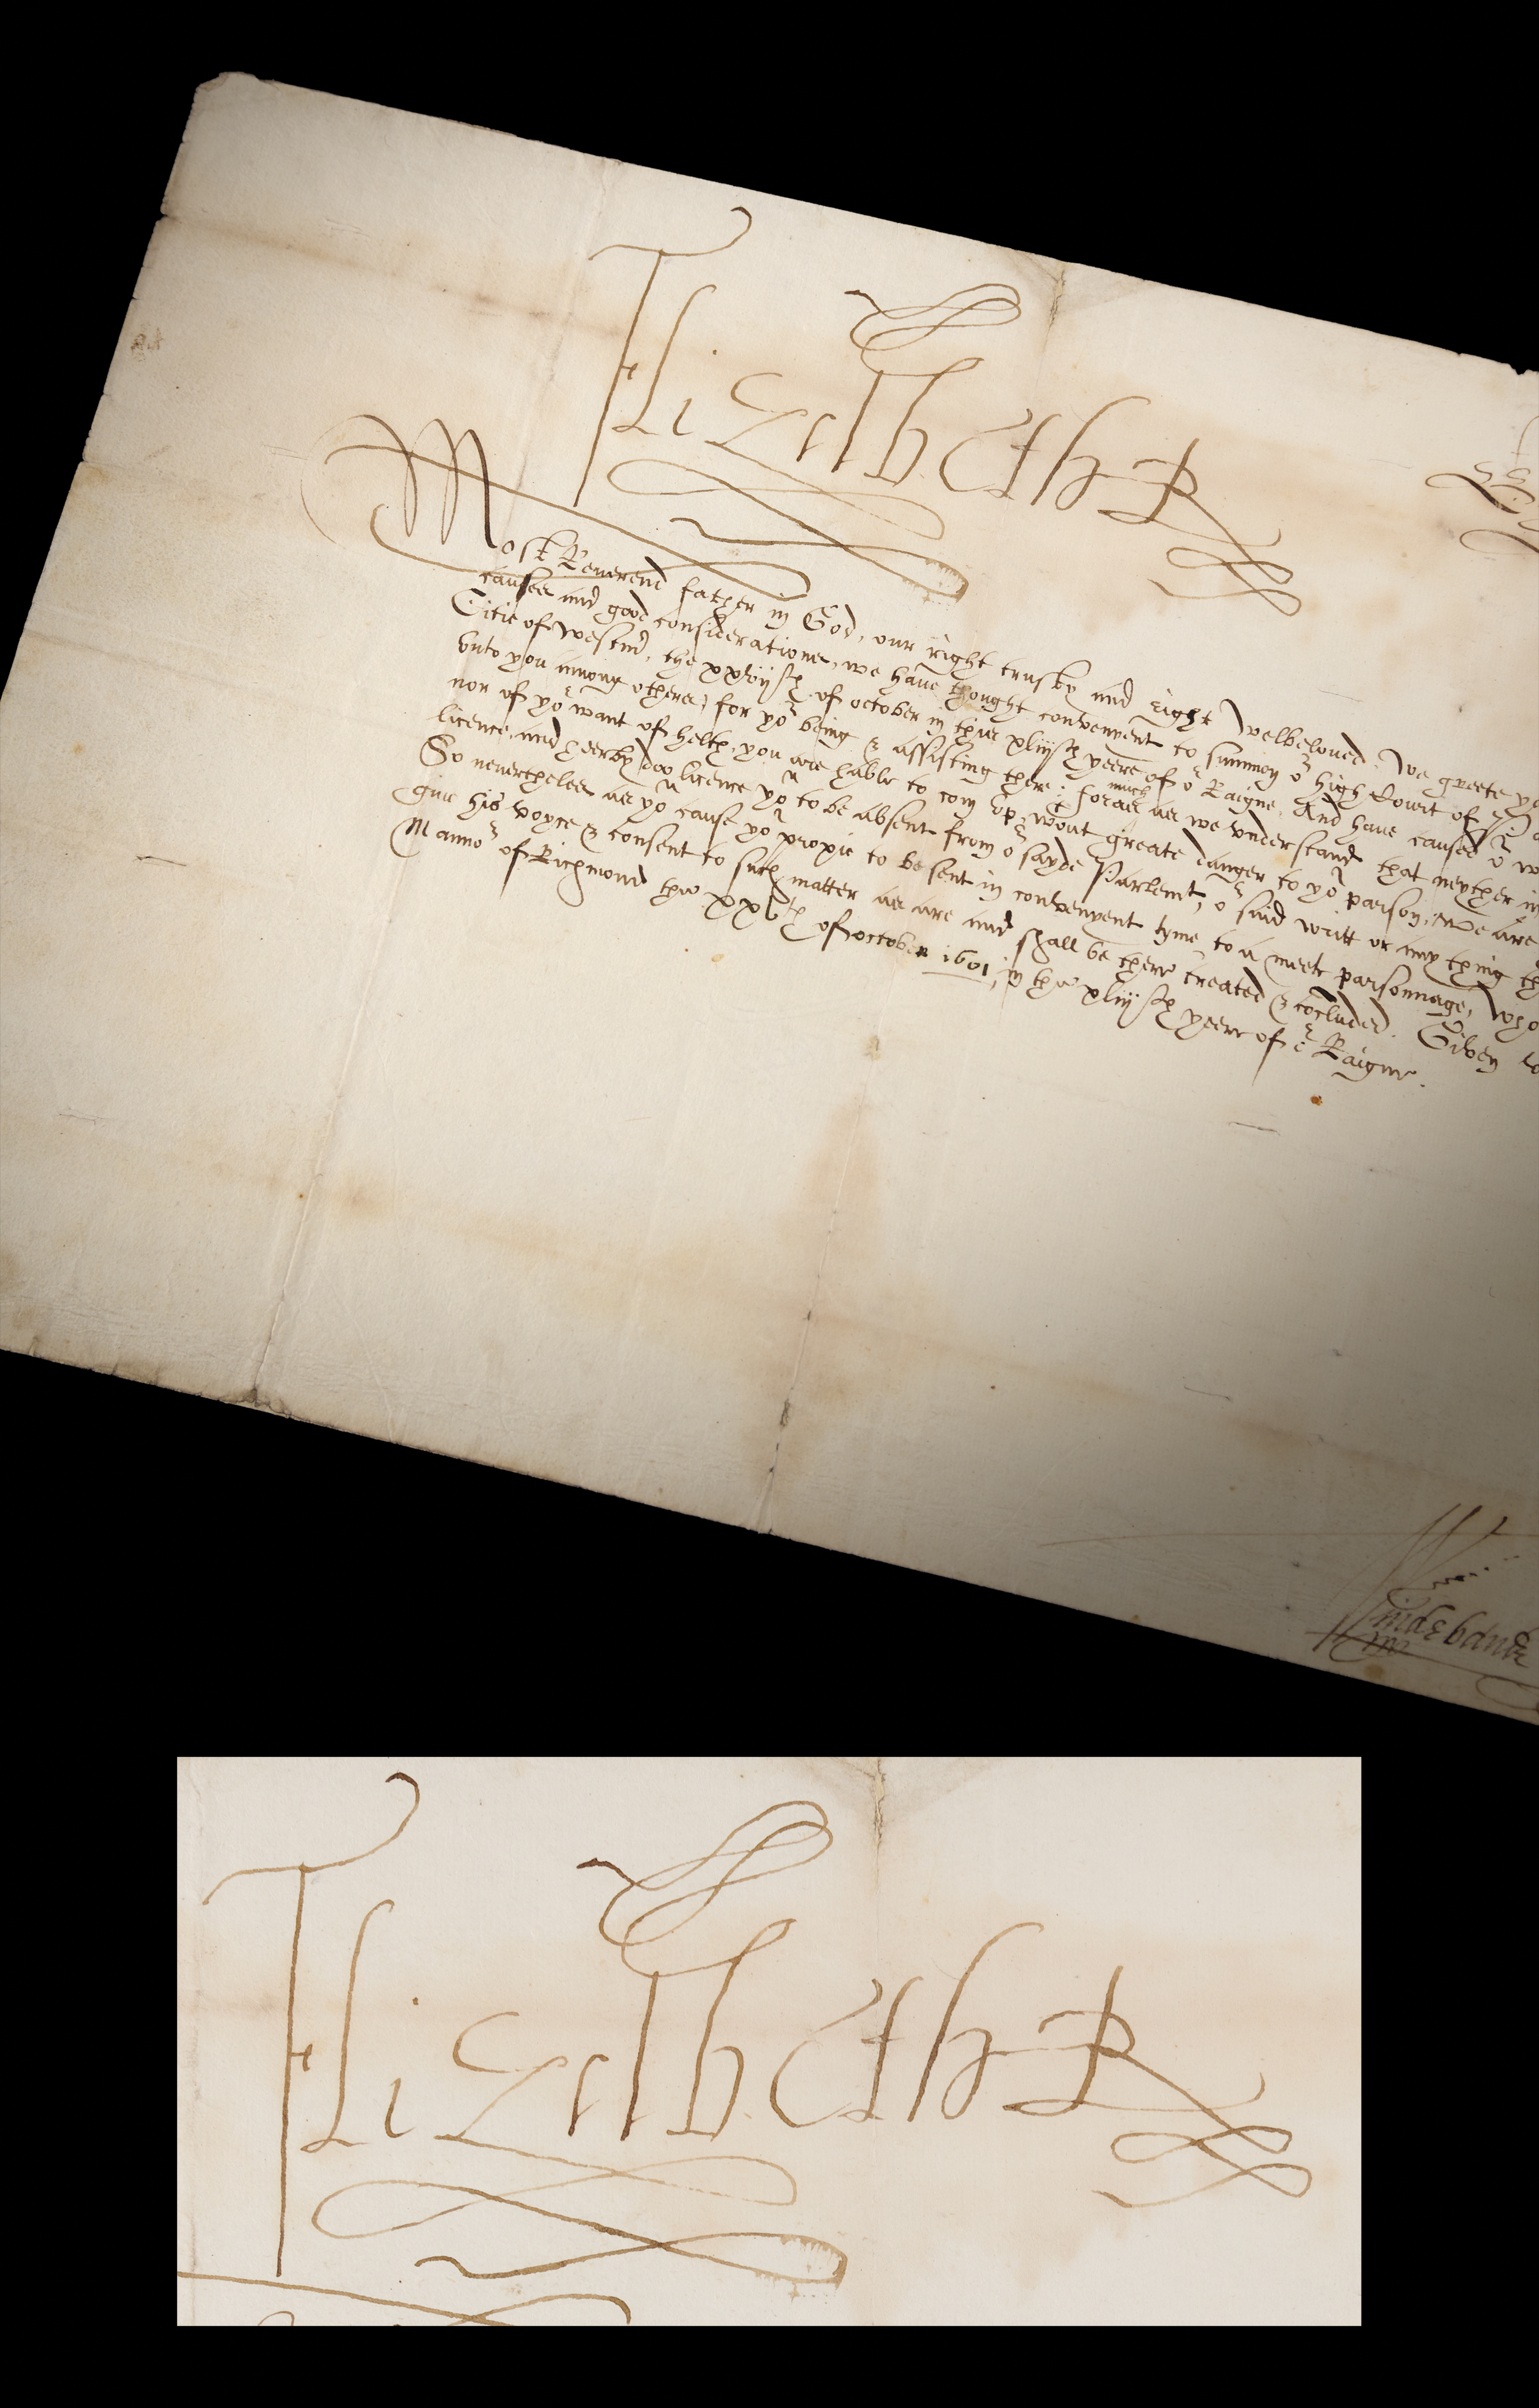 Elizabeth R
Most Reverend father in God, our right trusty and right welbeloved: We greete yo
causes and good considerations, we have thought convenyent to summon oʳ high Court of Pa
Citie of Westmʳ, the xxvijᵗʰ of october in this xliijᵗʰ yeere of oʳ Raigne. And have caused oʳ w
vnto you among others, for yoʳ being & assisting there: forasmuch as we vnderstand that neyther in
nor of yoʳ want of helth, you are hable to com vp wᵗout greate danger to yoʳ parson, We are
licence, and heerby doo licence yoᵘ to be absent from oʳ sayde Parlemt, oʳ said writt or any thing th
So nevertheles as yoᵘ cause yoʳ proxie to be sent in convenyent tyme, to a meete parsonnage, who
giue his voyce & consent to such matter as are and shall be there treated & cõcluded. Given v
Mannoʳ of Richmond the xxvᵗʰ of october 1601, in the xliijᵗʰ yeere of oʳ Raigne.
Elizabeth R